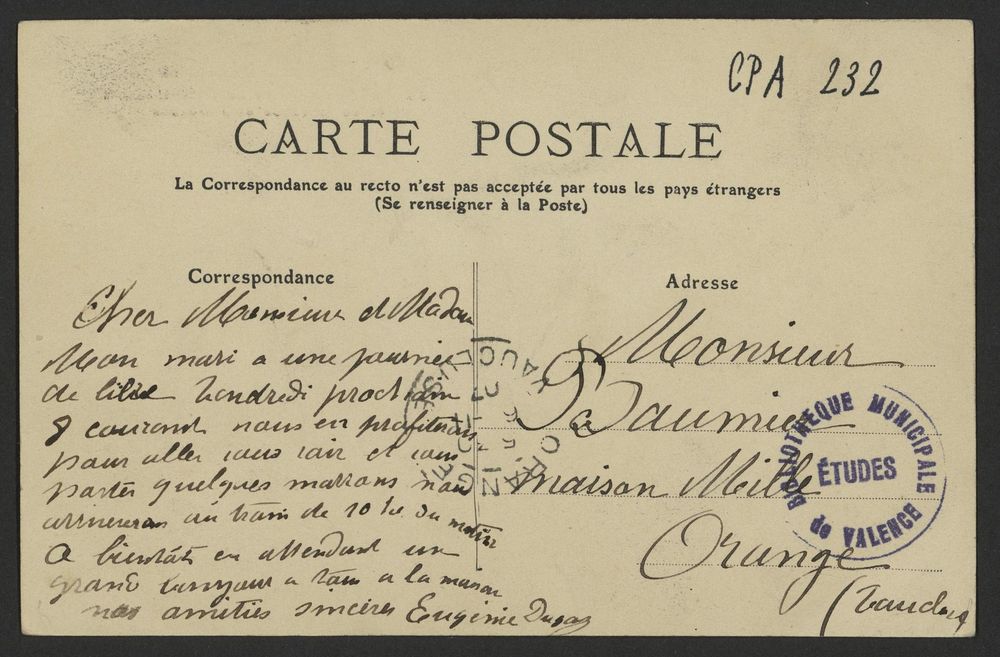 CPA 232
CARTE POSTALE
La Correspondance au recto n'est pas acceptée par tous les pays étrangers
(Se renseigner à la Poste)
Correspondance
Cher Monsieur et Madame
Mon mari a une journée
de libre Vendredi prochain
8 courant nous en profiterons
pour aller vous voir et vous
porter quelques marrons nous
arriverons au train de 10 h du matin
a bientôt en attendant un
grand bonjour a tous a la maison
nos amitiés sincères Eugénie
Adresse
Monsieur
Baumier
maison Mille
Orange
(Vaucluse)
ORANGE
VAUCLUSE
BIBLIOTHÈQUE MUNICIPALE
ÉTUDES
de VALENCE